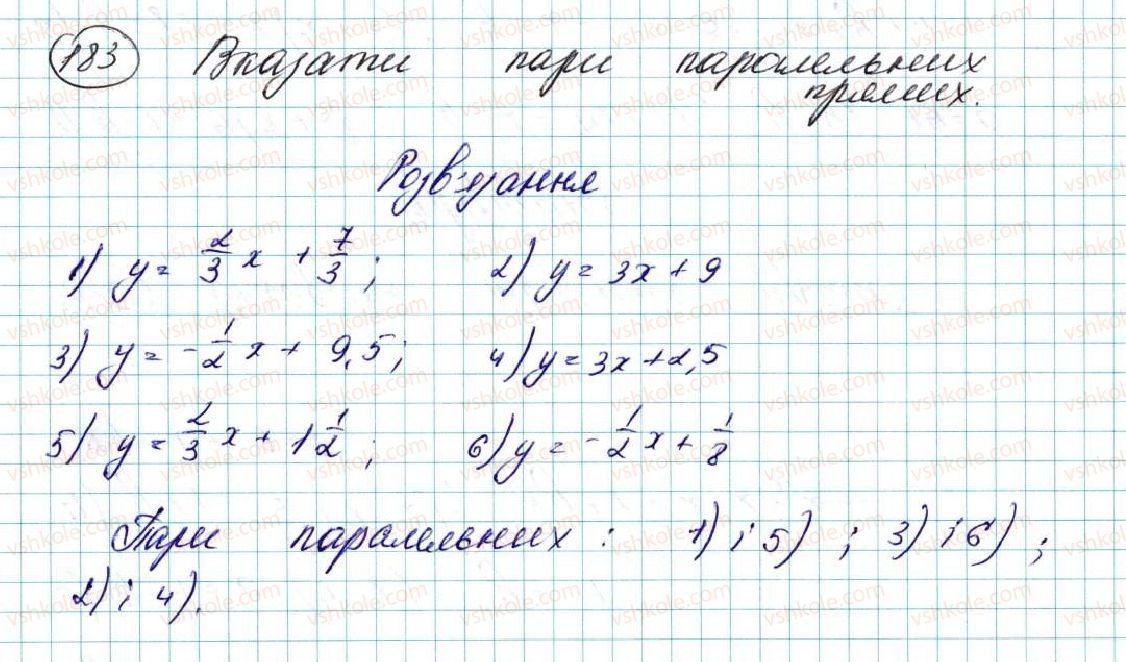 183 Вказати пари паралельних
прямих.
Розв'язання
1) y = 2/3 x + 7/3 ; 2) y = 3x + 9
3) y = -1/2 x + 9,5; 4) y = 3x + 2,5
5) y = 2/3 x + 1 1/2 ; 6) y = -1/2 x + 1/8
Пари паралельних : 1) і 5) ; 3) і 6) ;
2) і 4).
vshkole.com